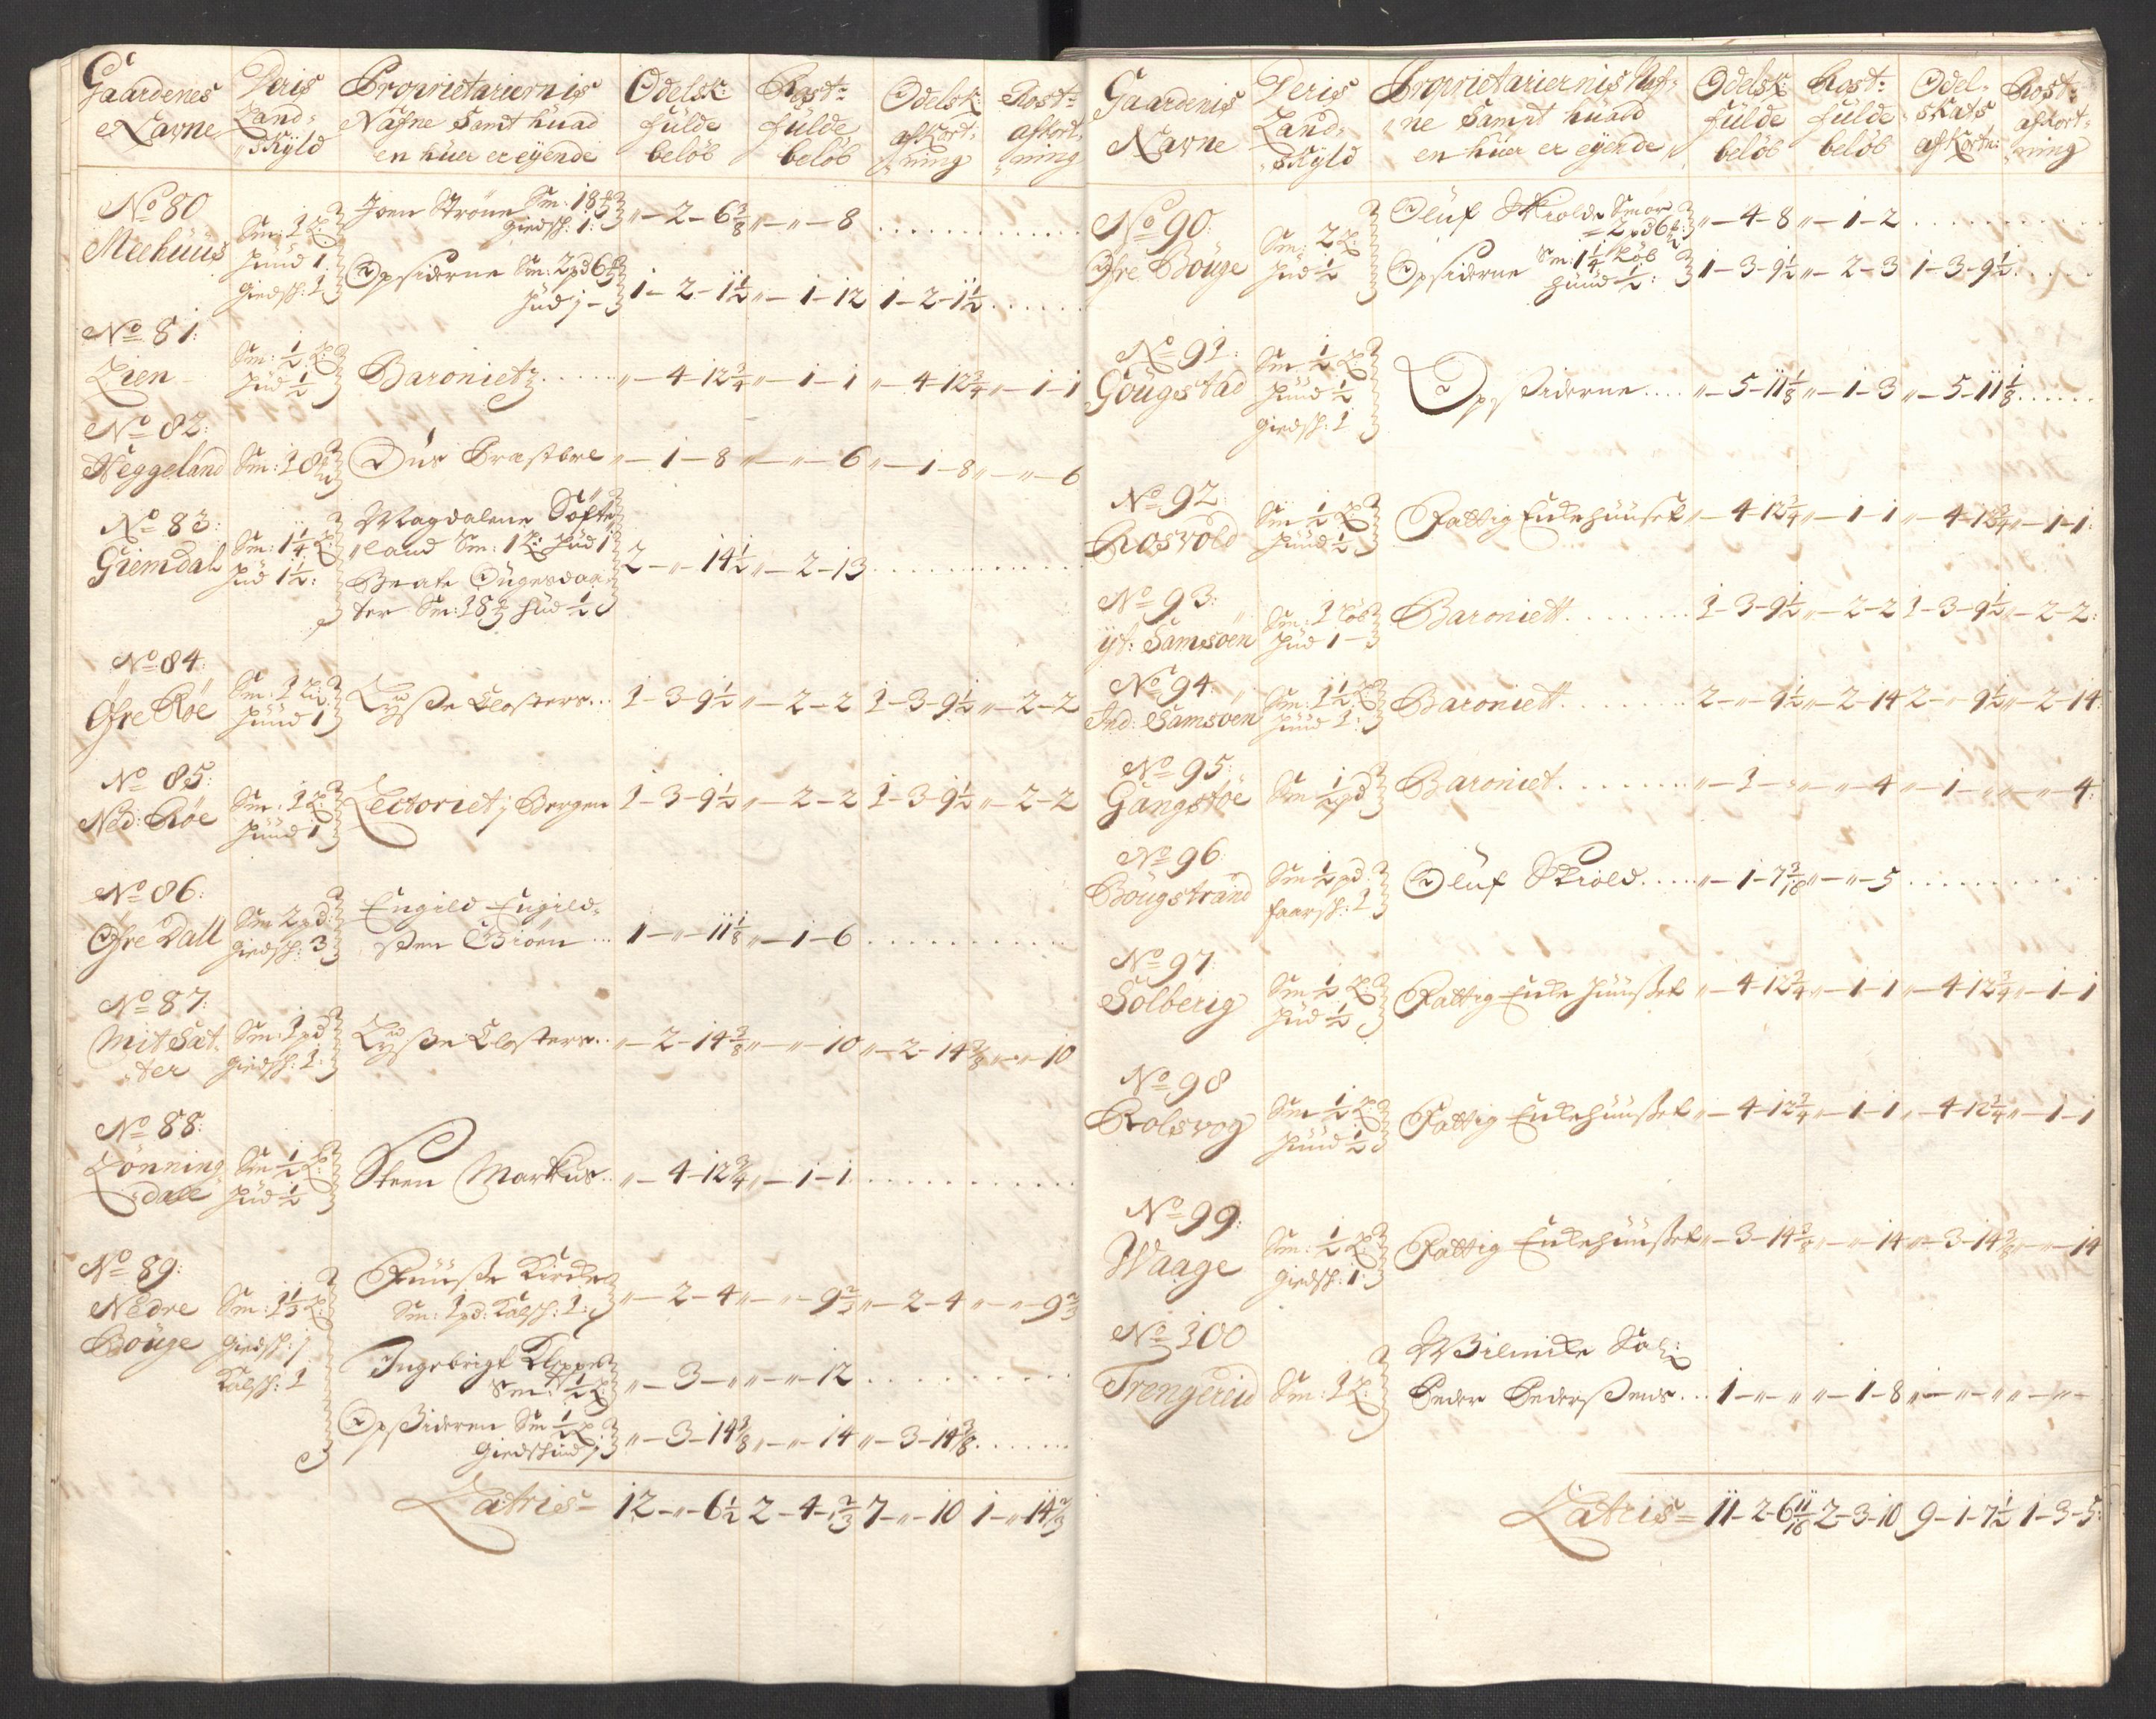 Gaardenes Navne | Deris Land-skyld | Proprietariernis Nafne samt huad en huer er eÿende | Odelsk: fulde belöb | Rost: fulde belöb | Odelsk: afkort-ning | Rost: afkort-ning
No 80 Meehuus | Sm: 1 L: huud 1 Giedsk: 1 | Joen Ströme Sm: 18 giedsk: 1: | „-2-6 3/8 | „-„-8
Opsiderne Sm: 2 pd 6 hud j- | 1-2-1 1/2 | „-1-12 | 1-2-1 1/2
No 81: Lien | Sm: 1/2 L: hud 1/2 | Baroniet | „-4-12 3/4 | „-1-1 | „-4-12 3/4 | „-1-1
No 82: Heggeland | Sm: 18 | Ous Præstbol | „-1-8 | „-„-6 | „-1-8 | „-„-6
No 83: Giemdal | Sm: 1 1/4 L: hud 1 1/2: | Magdalene Söfte-
land Sm: 1 L: hud 1
Beate Ougesdaa-
ter Sm: 18 hud 1/2 | 2-„-14 1/2 | „-2-13
No 84: Öfre Röe | Sm: 1 L: huud 1 | Lÿsse Closters | 1-3-9 1/2 | „-2-2 | 1-3-9 1/2 | „-2-2
No 85: Ned: Röe | Sm: 1 L: huud 1 | Lectoriet j Bergen | 1-3-9 1/2 | „-2-2 | 1-3-9 1/2 | „-2-2
No 86: Öfre Dall | Sm 2 pd: Giedsk: 3 | Engild Engild-
sen Biöen | 1-„-11 1/8 | „-1-6
No 87: Mit Sæt-ter | Sm: 1 pd Giedsk: 1: | Lÿsse Closters | „-2-14 3/8 | „-„-10 | „-2-14 3/8 | „-„-10
No 88: Lönning dall | Sm 1/2 L: hud 1/2 | Steen Markus | „-4-12 3/4 | „-1-1
No 89: Nedre Böuge | Sm: 1 1/3 L: Giedsk: j Kalsk: 1 | Fuusse Kircke
Sm: 1 pd: Kalsk: 1: | „-2-4 | „-„-9 2/3 | „-2-4 | „-„-9 2/3
Ingebrigt Kloppe
Sm: 1/2 L: | „-3-„ | „-„-12
Opsideren Sm 1/2 L:
Giedskind j | „-3-14 3/8 | „-„-14 | „-3-14 3/8
Latris= | 12-„-6 1/2 | 2-4-2/3 | 7-„-10 | 1-„-14 2/3
Gaardenis Navne | Deris Land-skÿld | Proprietariernis Naf-ne samt huad en huer er eÿende | Odelsk: fulde belöb | Rost: fulde belöb | Odel-skats afkortn: | Rost: afkort-ning
No 90: Öfre Böuge | Sm: 2 L: hud 1/2 | Oluf Skiolde Smör
2 pd 6 | „-4-8 | „-1-2
Opsiderne Sm: 1 1/4 Löb
huud 1/2: | 1-3-9 1/2 | „-2-3 | 1-3-9 1/2
No 91: Gougstad | Sm 1/2 L: huud 1/2 giedsk: 1 | Opsiderne | „-5-11 1/8 | „-1-3 | „-5-11 1/8
No 92: Rosvold | Sm 1/2 L: huud 1/2 | Fattig Enkehuuset | „-4-12 3/4 | „-1-1 | „-4-12 3/4 | „-1-1:
No 93: ÿt: Samsoen | Sm: 1 Löb hud 1- | Baroniett | 1-3-9 1/2 | „-2-2 | 1-3-9 1/2 | „-2-2:
No 94: Ind: Samsoen | Sm: 1 1/2 L: huud 1: | Baroniett | 2-„-9 1/2 | „-2-14 | 2-„-9 1/2 | „-2-14:
No 95: Gangstöe | Sm 1/2 pd | Baroniet | „-1-„ | „-„-4 | „-1-„ | „-„-4:
No 96: Bougstrand | Sm 1/2 pd: faarsk: 1 | Oluf Skiold | „-1-7 3/18 | „-„-5
No 97: Solberig | Sm 1/2 L: hud 1/2 | Fattig Enke huusset | „-4-12 3/4 | „-1-1 | „-4-12 3/4 | „-1-1
No 98 Rolsvog | Sm 1/2 L: huud 1/2 | Fattig Enkehuusset | „-4-12 3/4 | „-1-1 | „-4-12 3/4 | „-1-1
No 99: Waage | Sm: 1/2 L: Giedsk: 1: | Fattig Enkehuusset | „-3-14 3/8 | „-„-14 | „-3-14 3/8 | „-„-14
No 100 Trengereid | Sm: 1 L: | Wilmike Sal:
Peder Pedersens | 1-„-„ | „-1-8 | „-„-„ | „-„-
Latris= | 11-2-6 11/16 | 2-3-10 | 9-1-7 1/2 | 1-3-5: